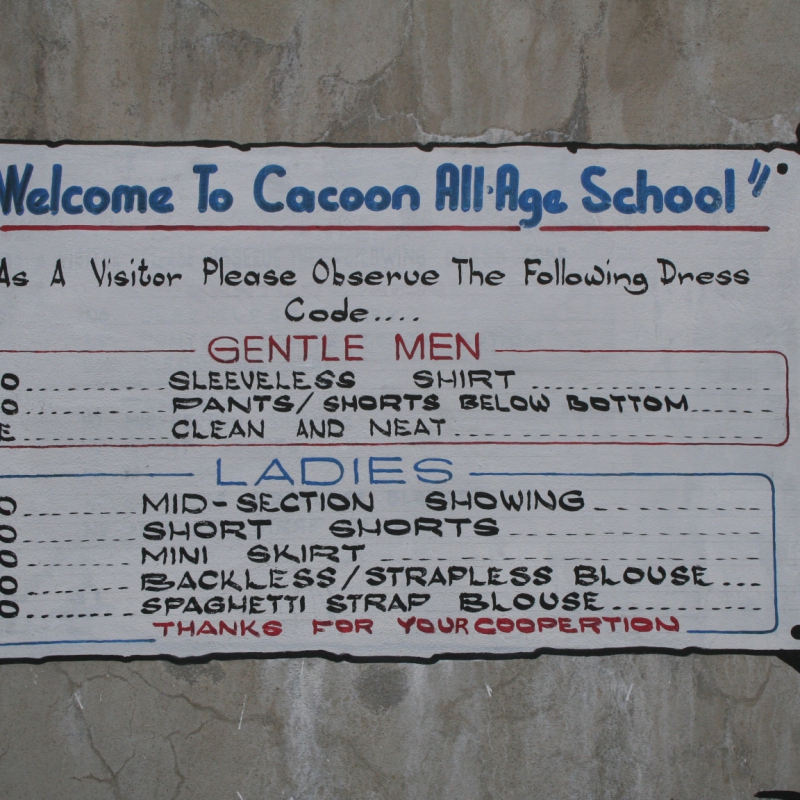 Welcome To Cacoon All-Age School"
As A Visitor Please Observe The Following Dress
Code....
GENTLE MEN
O.................SLEEVELESS SHIRT................
O.................PANTS/SHORTS BELOW BOTTOM........
E.................CLEAN AND NEAT................
LADIES
O.............MID-SECTION SHOWING.............
O.............SHORT SHORTS.............
O.............MINI SKIRT.............
O.............BACKLESS/STRAPLESS BLOUSE...
O.............SPAGHETTI STRAP BLOUSE.............
THANKS FOR YOUR COOPERTION